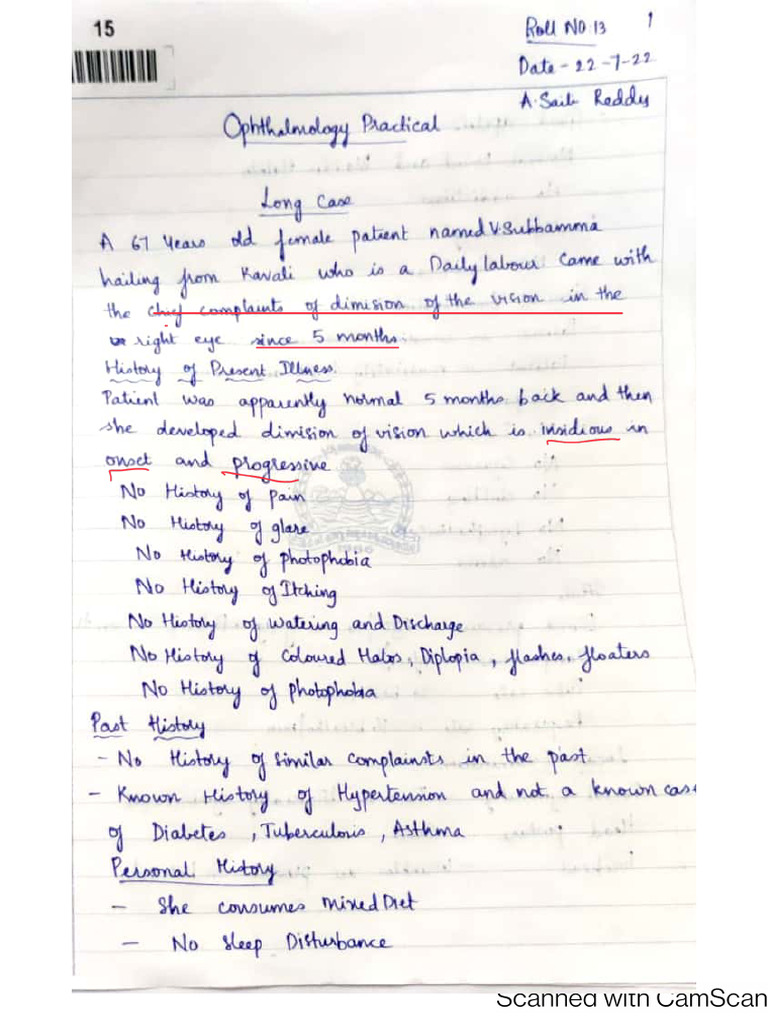 15
Roll NO: 13
1
Date - 22-7-22
A. Sai Reddy
Ophthalmology Practical
Long Case
A 67 Years old female patient named V. Subbamma
hailing from Kavali who is a Daily labour came with
the chief complaints of dimision of the vision in the
right eye since 5 months.
History of Present Illness.
Patient was apparently normal 5 months back and then
she developed dimision of vision which is insidious in
onset and progressive
No History of pain
No History of glare
No History of photophobia
No History of Itching
No History of watering and Discharge
No History of Coloured Halos, Diplopia, flashes, floaters
No History of photophobia
Past History
- No History of similar complainsts in the past
- Known History of Hypertension and not a known cas
of Diabetes, Tuberculosis, Asthma
Personal History
- She consumes mixed Diet
- No Sleep Disturbance
Scanned with CamScan